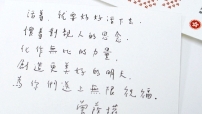 活着，就要好好活下去，
懷着對親人的思念，
化作無比的力量，
創造更美好的明天。
為你們送上無限祝福。